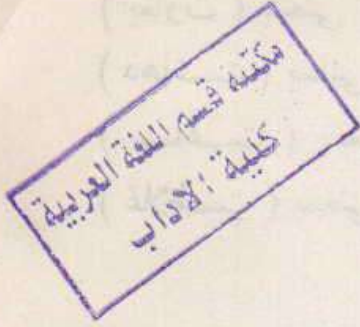 مكتبة قسم اللغة العربية
كلية الاداب